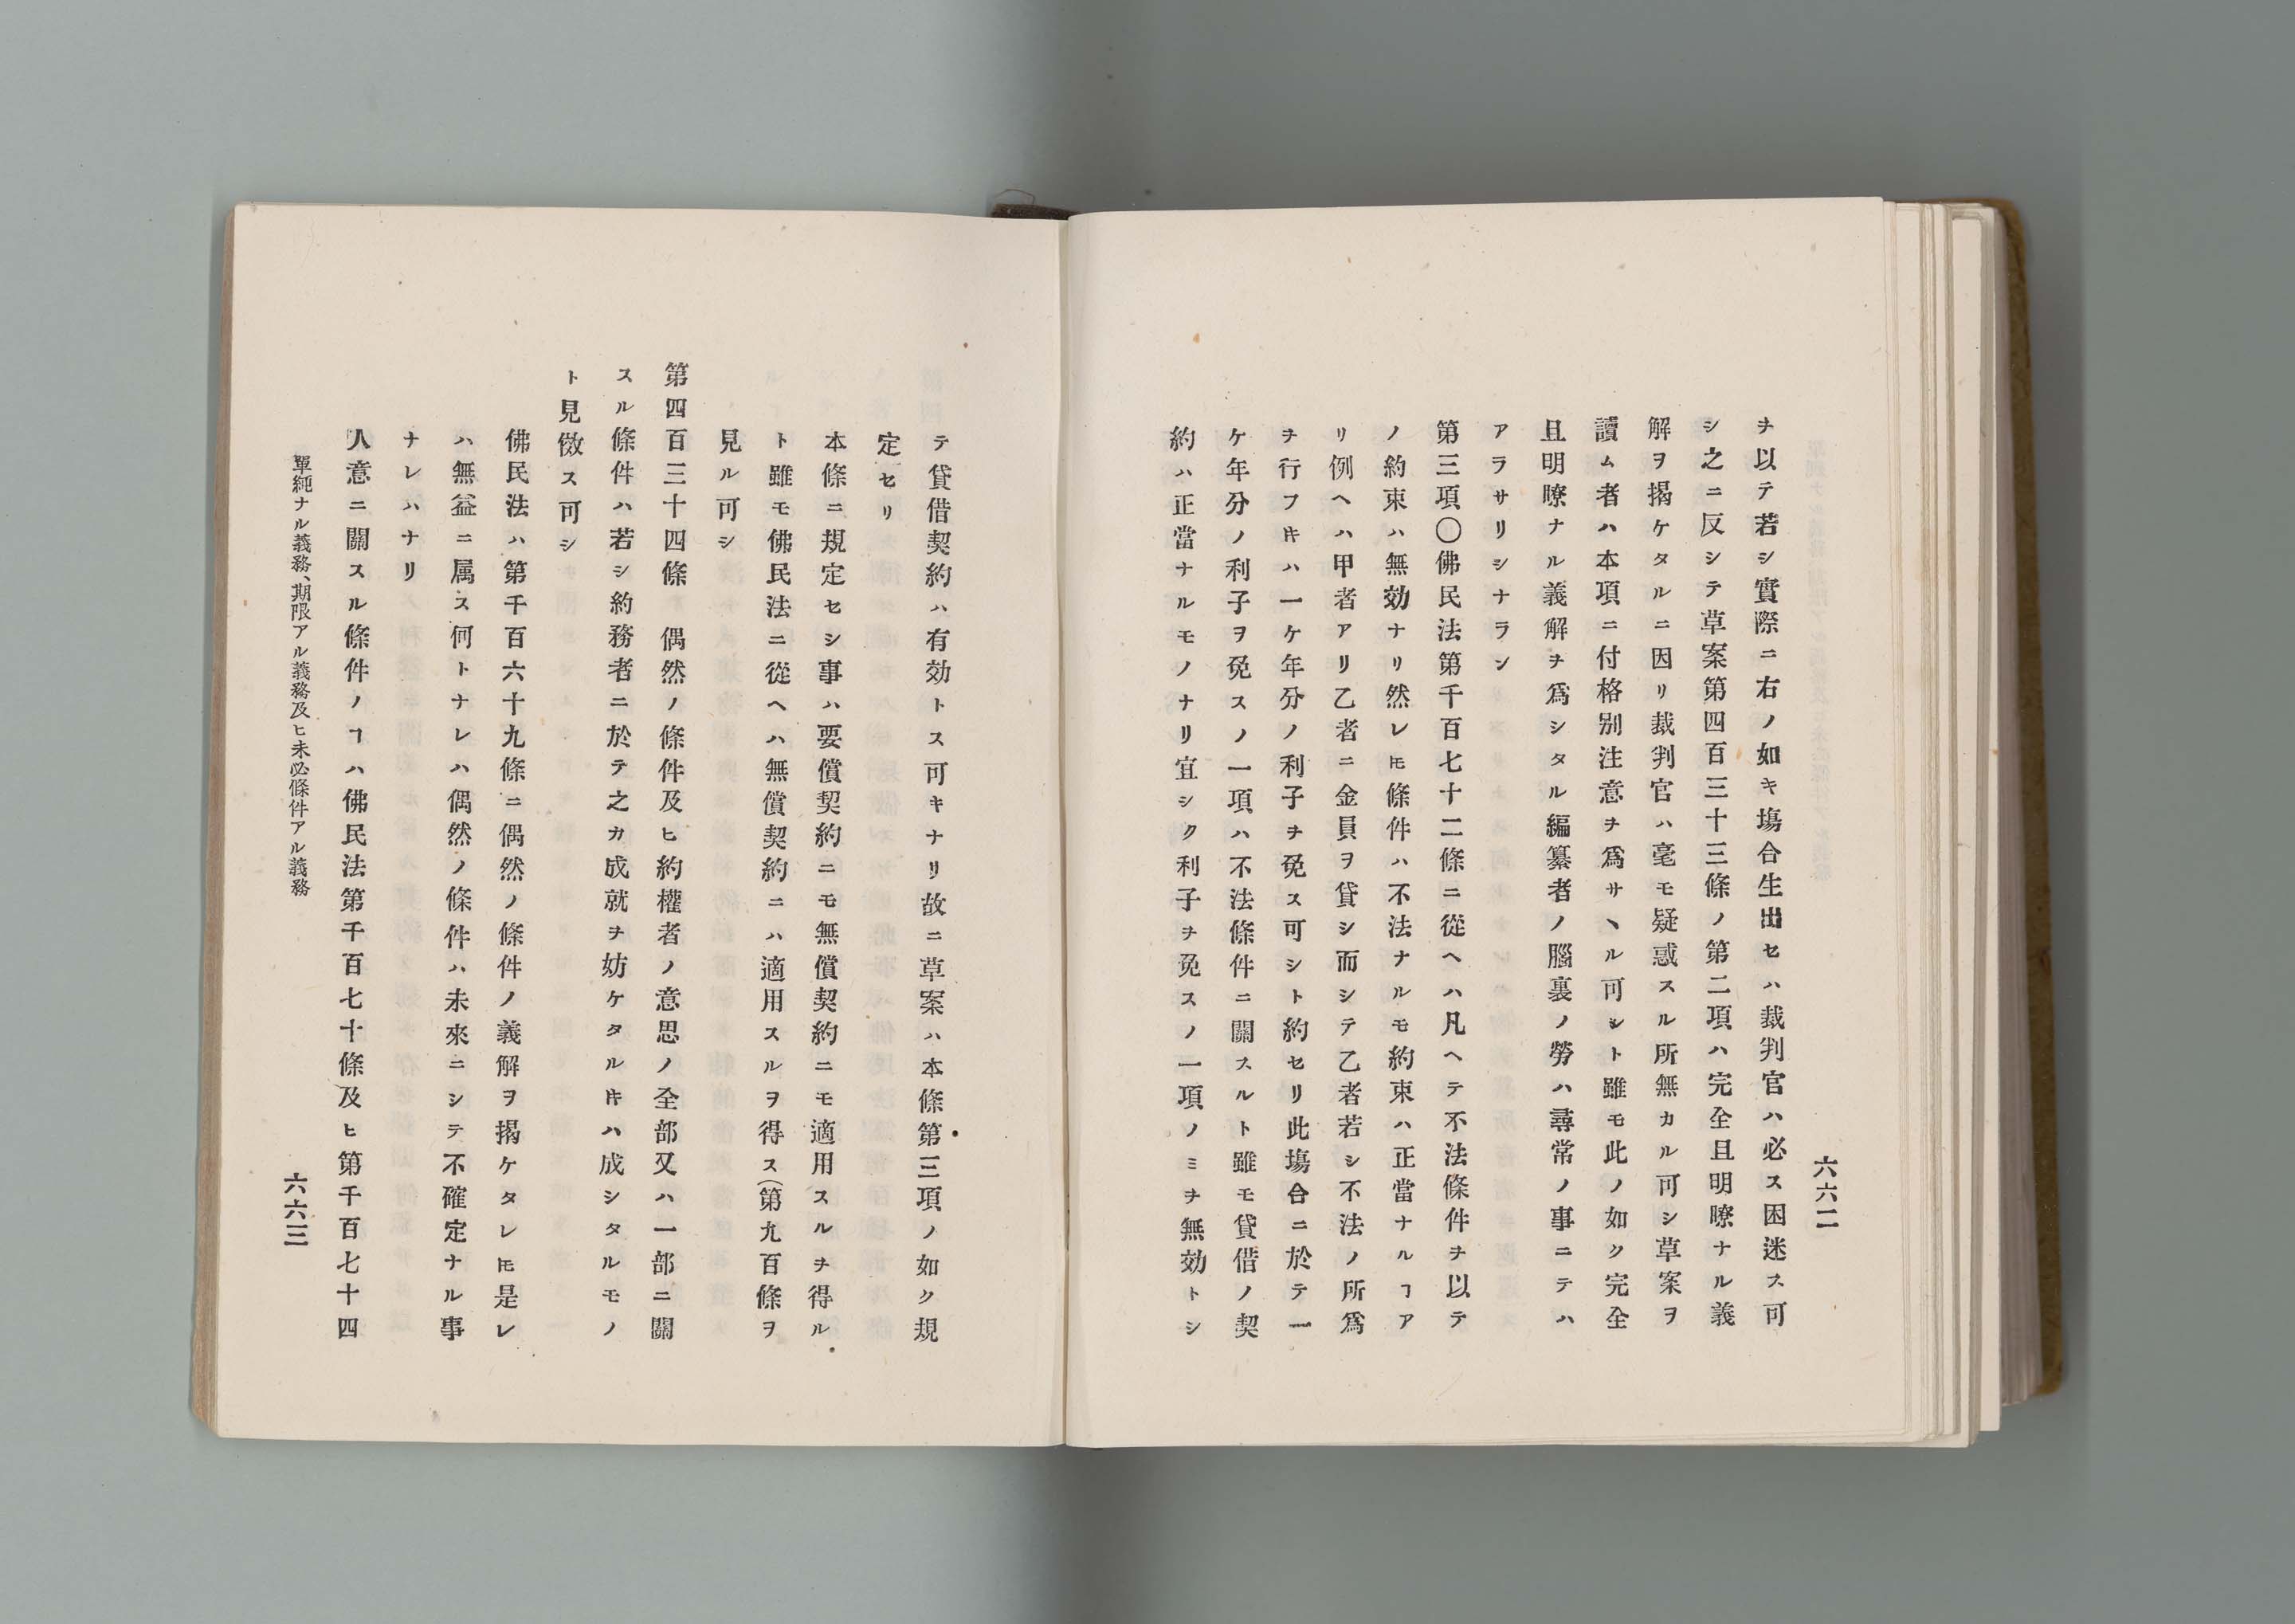 六六二
ヲ以テ若シ實際ニ右ノ如キ塲合生出セハ裁判官ハ必ス困迷ス可
シ之ニ反シテ草案第四百三十三條ノ第二項ハ完全且明瞭ナル義
解ヲ揭ケタルニ因リ裁判官ハ毫モ疑惑スル所無カル可シ草案ヲ
讀ム者ハ本項ニ付格別注意ヲ爲サヽル可シト雖モ此ノ如ク完全
且明瞭ナル義解ヲ爲シタル編纂者ノ腦裏ノ勞ハ尋常ノ事ニテハ
アラサリシナラン
第三項〇佛民法第千百七十二條ニ從ヘハ凡ヘテ不法條件ヲ以テ
ノ約束ハ無効ナリ然レ𪜈條件ハ不法ナルモ約束ハ正當ナルヿア
リ例ヘハ甲者アリ乙者ニ金員ヲ貸シ而シテ乙者若シ不法ノ所爲
ヲ行フ𪜈ハ一ケ年分ノ利子ヲ免ス可シト約セリ此塲合ニ於テ一
ケ年分ノ利子ヲ免スノ一項ハ不法條件ニ關スルト雖モ貸借ノ契
約ハ正當ナルモノナリ宜シク利子ヲ免スノ一項ノミヲ無効トシ
テ貸借契約ハ有効トス可キナリ故ニ草案ハ本條第三項ノ如ク規
定セリ
本條ニ規定セシ事ハ要償契約ニモ無償契約ニモ適用スルヲ得ル
ト雖モ佛民法ニ從ヘハ無償契約ニハ適用スルヲ得ス(第九百條ヲ
見ル可シ
第四百三十四條 偶然ノ條件及ヒ約權者ノ意思ノ全部又ハ一部ニ關
スル條件ハ若シ約務者ニ於テ之カ成就ヲ妨ケタルキハ成シタルモノ
ト見做ス可シ
佛民法ハ第千百六十九條ニ偶然ノ條件ノ義解ヲ揭ケタレ𪜈是レ
ハ無益ニ属ス何トナレハ偶然ノ條件ハ未來ニシテ不確定ナル事
ナレハナリ
人意ニ關スル條件ノヿハ佛民法第千百七十條及ヒ第千百七十四
單純ナル義務、期限アル義務及ヒ未必條件アル義務
六六三